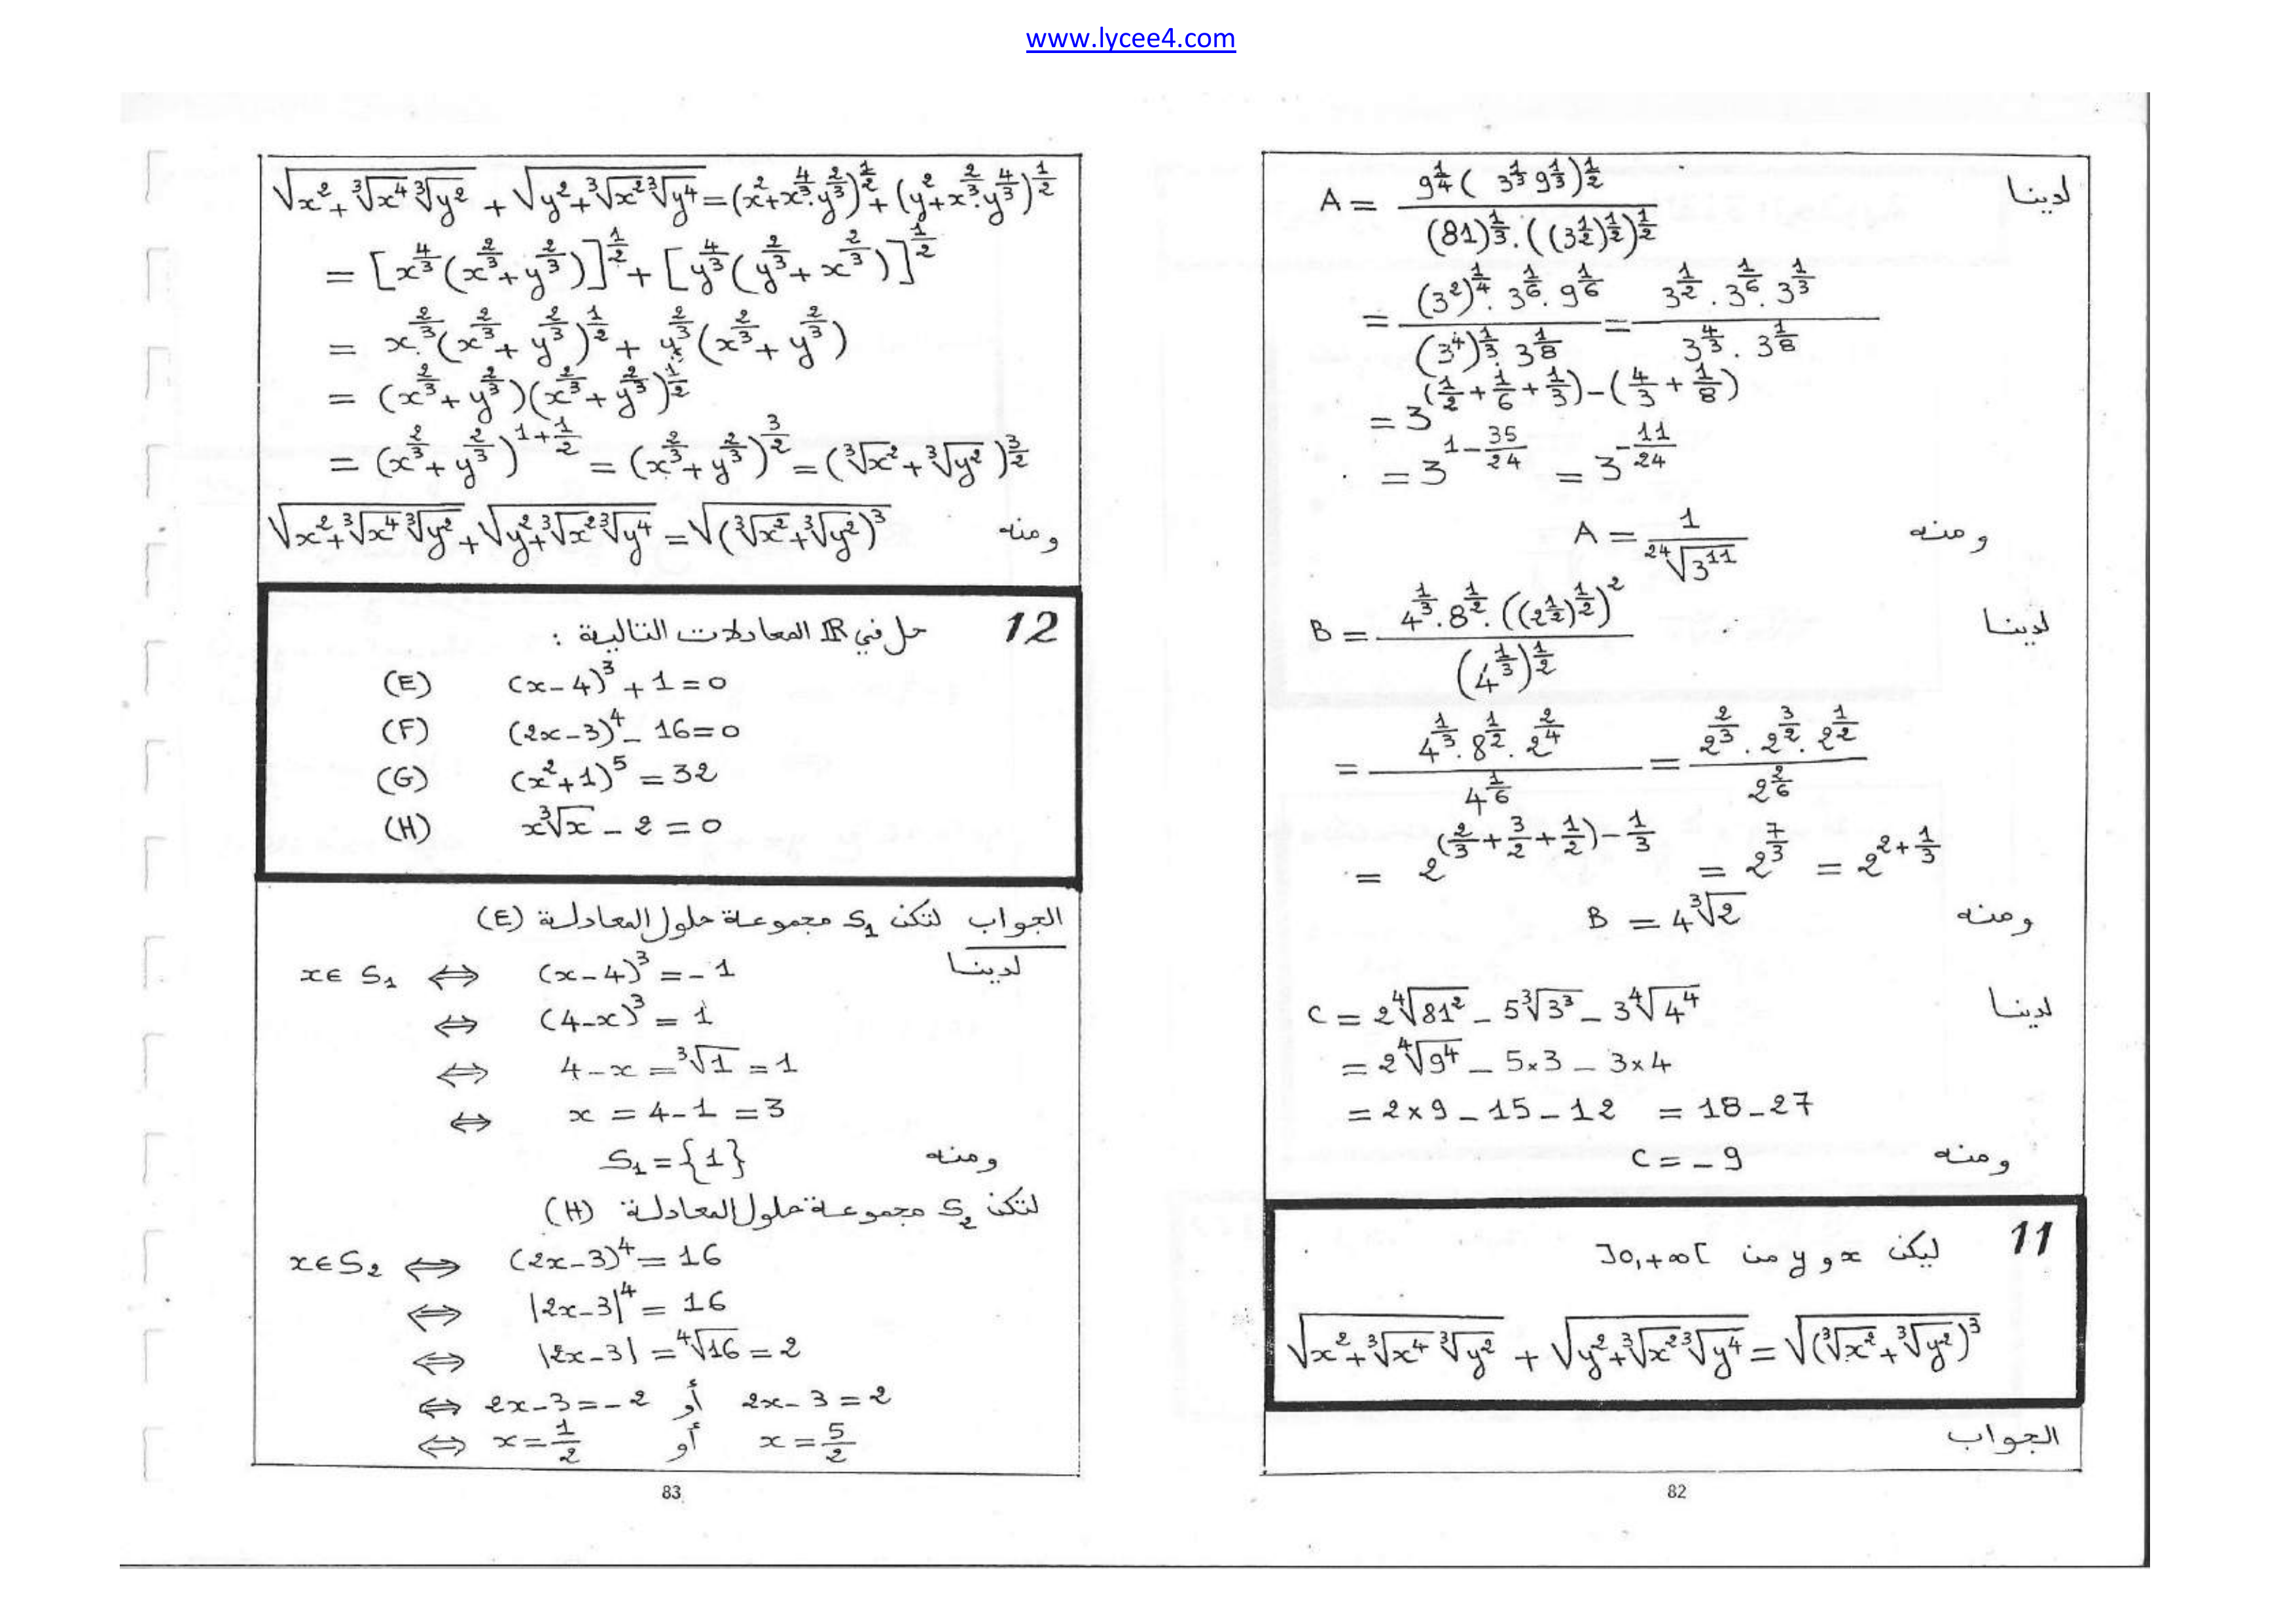 www.lycee4.com
لدينا A = \frac{9^{\frac{1}{4}}(3^{\frac{1}{3}} 9^{\frac{1}{3}})^{\frac{1}{2}}}{(81)^{\frac{1}{3}}.((3^{\frac{1}{2}})^{\frac{1}{2}})^{\frac{1}{2}}}
= \frac{(3^2)^{\frac{1}{4}}.3^{\frac{1}{6}}.9^{\frac{1}{6}}}{(3^4)^{\frac{1}{3}}.3^{\frac{1}{8}}} = \frac{3^{\frac{1}{2}}.3^{\frac{1}{6}}.3^{\frac{1}{3}}}{3^{\frac{4}{3}}.3^{\frac{1}{8}}}
= 3^{(\frac{1}{2}+\frac{1}{6}+\frac{1}{3})-(\frac{4}{3}+\frac{1}{8})}
= 3^{1-\frac{35}{24}} = 3^{-\frac{11}{24}}
ومنه A = \frac{1}{\sqrt[24]{3^{11}}}
لدينا B = \frac{4^{\frac{1}{3}}.8^{\frac{1}{2}}.((2^{\frac{1}{2}})^{\frac{1}{2}})^2}{(4^{\frac{1}{3}})^{\frac{1}{2}}}
= \frac{4^{\frac{1}{3}}.8^{\frac{1}{2}}.2^{\frac{2}{4}}}{4^{\frac{1}{6}}} = \frac{2^{\frac{2}{3}}.2^{\frac{3}{2}}.2^{\frac{1}{2}}}{2^{\frac{2}{6}}}
= 2^{(\frac{2}{3}+\frac{3}{2}+\frac{1}{2})-\frac{1}{3}} = 2^{\frac{7}{3}} = 2^{2+\frac{1}{3}}
ومنه B = 4\sqrt[3]{2}
لدينا C = 2\sqrt[4]{81^2} - 5\sqrt[3]{3^3} - 3\sqrt[4]{4^4}
= 2\sqrt[4]{9^4} - 5×3 - 3×4
= 2×9 - 15 - 12 = 18 - 27
ومنه C = -9
11 ليكن x و y من ]0,+∞[
\sqrt{x^2+\sqrt[3]{x^4}\sqrt[3]{y^2}} + \sqrt{y^2+\sqrt[3]{x^2}\sqrt[3]{y^4}} = \sqrt{(\sqrt[3]{x^2}+\sqrt[3]{y^2})^3}
الجواب
82
\sqrt{x^2+\sqrt[3]{x^4}\sqrt[3]{y^2}} + \sqrt{y^2+\sqrt[3]{x^2}\sqrt[3]{y^4}} = (x^2+x^{\frac{4}{3}}.y^{\frac{2}{3}})^{\frac{1}{2}} + (y^2+x^{\frac{2}{3}}.y^{\frac{4}{3}})^{\frac{1}{2}}
= [x^{\frac{4}{3}}(x^{\frac{2}{3}}+y^{\frac{2}{3}})]^{\frac{1}{2}} + [y^{\frac{4}{3}}(y^{\frac{2}{3}}+x^{\frac{2}{3}})]^{\frac{1}{2}}
= x^{\frac{2}{3}}(x^{\frac{2}{3}}+y^{\frac{2}{3}})^{\frac{1}{2}} + y^{\frac{2}{3}}(x^{\frac{2}{3}}+y^{\frac{2}{3}})
= (x^{\frac{2}{3}}+y^{\frac{2}{3}})(x^{\frac{2}{3}}+y^{\frac{2}{3}})^{\frac{1}{2}}
= (x^{\frac{2}{3}}+y^{\frac{2}{3}})^{1+\frac{1}{2}} = (x^{\frac{2}{3}}+y^{\frac{2}{3}})^{\frac{3}{2}} = (\sqrt[3]{x^2}+\sqrt[3]{y^2})^{\frac{3}{2}}
ومنه \sqrt{x^2+\sqrt[3]{x^4}\sqrt[3]{y^2}} + \sqrt{y^2+\sqrt[3]{x^2}\sqrt[3]{y^4}} = \sqrt{(\sqrt[3]{x^2}+\sqrt[3]{y^2})^3}
12 حل في ℝ المعادلات التالية :
(E) (x-4)^3 + 1 = 0
(F) (2x-3)^4 - 16 = 0
(G) (x^2+1)^5 = 32
(H) x\sqrt[3]{x} - 2 = 0
الجواب لتكن S_1 مجموعة حلول المعادلة (E)
لدينا x∈S_1 ⟺ (x-4)^3 = -1
⟺ (4-x)^3 = 1
⟺ 4-x = \sqrt[3]{1} = 1
⟺ x = 4-1 = 3
ومنه S_1 = {1}
لتكن S_2 مجموعة حلول المعادلة (H)
x∈S_2 ⟺ (2x-3)^4 = 16
⟺ |2x-3|^4 = 16
⟺ |2x-3| = \sqrt[4]{16} = 2
⟺ 2x-3 = -2 أو 2x-3 = 2
⟺ x = \frac{1}{2} أو x = \frac{5}{2}
83